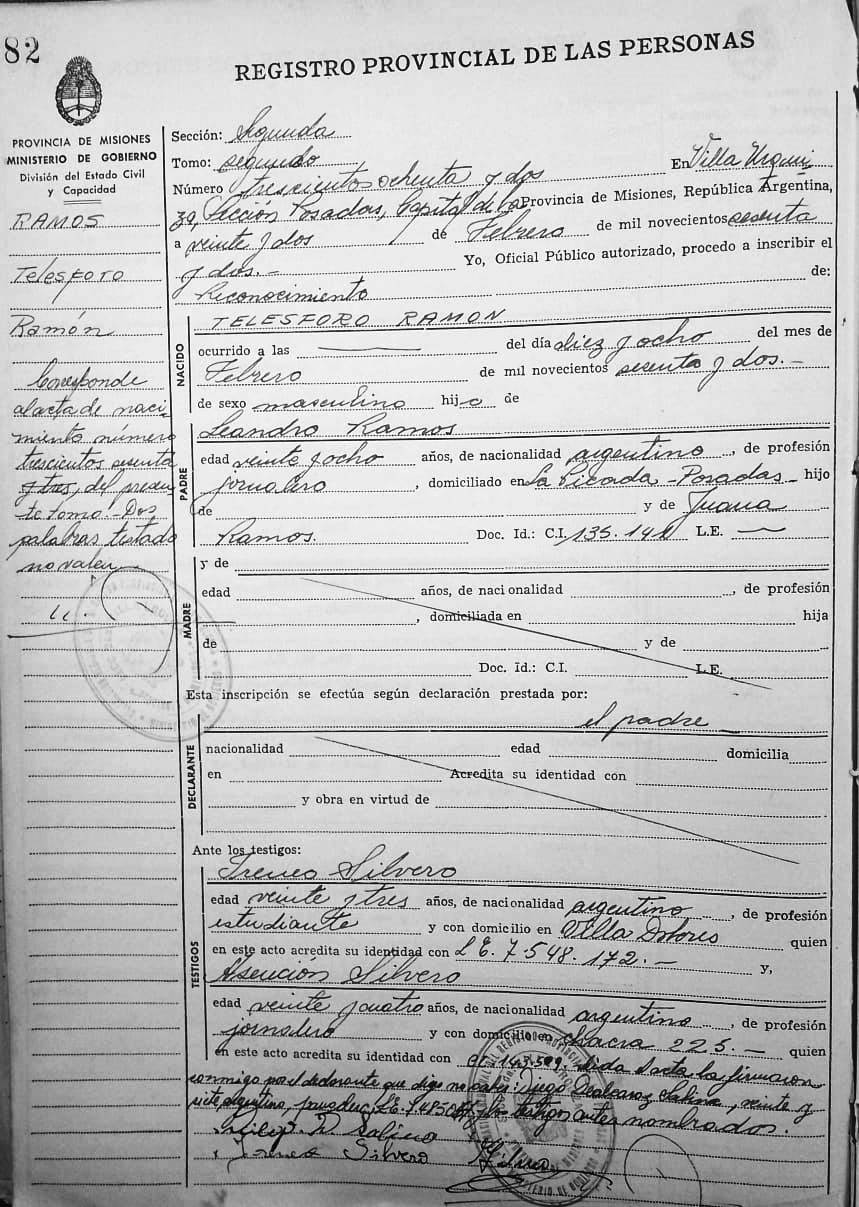 82
REGISTRO PROVINCIAL DE LAS PERSONAS
PROVINCIA DE MISIONES
MINISTERIO DE GOBIERNO
División del Estado Civil
y Capacidad
RAMOS
Telesforo
Ramón
Corresponde
al acta de naci-
miento número
trescientos sesenta
y tres, del presen-
te tomo. - Dos
palabras testado
no valen
Sección: Segunda
Tomo: segundo
Número trescientos ochenta y dos En Villa Urqui
za, Sección Posadas, Capital de la Provincia de Misiones, República Argentina,
a veinte y dos de Febrero de mil novecientos sesenta
y dos.- Yo, Oficial Público autorizado, procedo a inscribir el
Reconocimiento de:
NACIDO
TELESFORO RAMON
ocurrido a las del día diez y ocho del mes de
Febrero de mil novecientos sesenta y dos.-
de sexo masculino hijo de
PADRE
Leandro Ramos
edad veinte y ocho años, de nacionalidad argentino, de profesión
jornalero, domiciliado en La Picada - Posadas - hijo
de y de Juana
Ramos. Doc. Id.: C.I. 135.141 L.E.
MADRE
y de
edad años, de nacionalidad , de profesión
, domiciliada en hija
de y de
Doc. Id.: C.I. L.E.
Esta inscripción se efectúa según declaración prestada por:
el padre
DECLARANTE
nacionalidad edad domicilia
en Acredita su identidad con
y obra en virtud de
Ante los testigos:
TESTIGOS
Ireneo Silvero
edad veinte y tres años, de nacionalidad argentino, de profesión
estudiante y con domicilio en Villa Dolores quien
en este acto acredita su identidad con L.E. 7.548.172.- y,
Asención Silvero
edad veinte y cuatro años, de nacionalidad argentino, de profesión
jornalero y con domicilio en chacra 225.- quien
en este acto acredita su identidad con Leída el acta la firmaron
conmigo por el declarante que dijo no saber: Diego Salina, veinte y
siete, argentino, L.E. y los testigos antes nombrados.
Ireneo Silvero